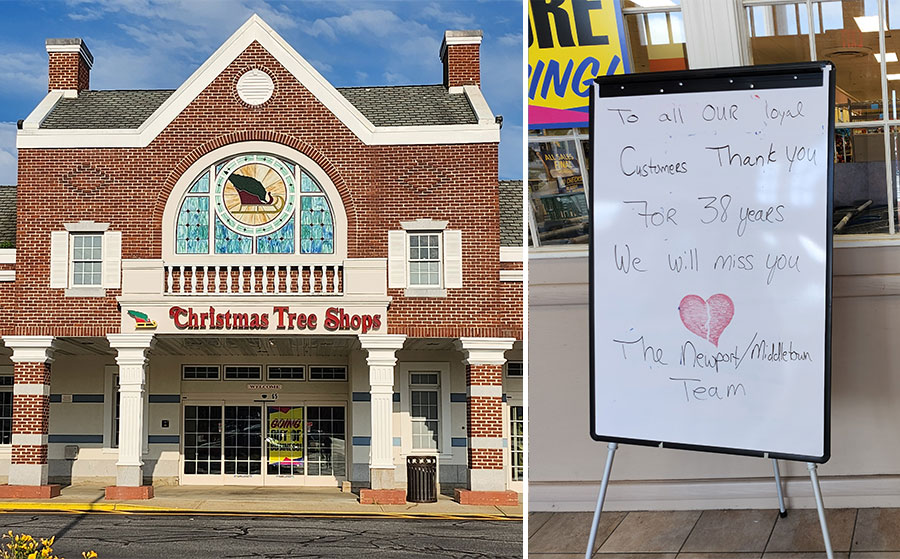 Christmas Tree Shops
WELCOME
65
GOING
OUT OF
BUSINESS
RE
ING!
To all OUR loyal
Customers Thank you
FOR 38 years
We will miss you
The Newport/Middletown
Team